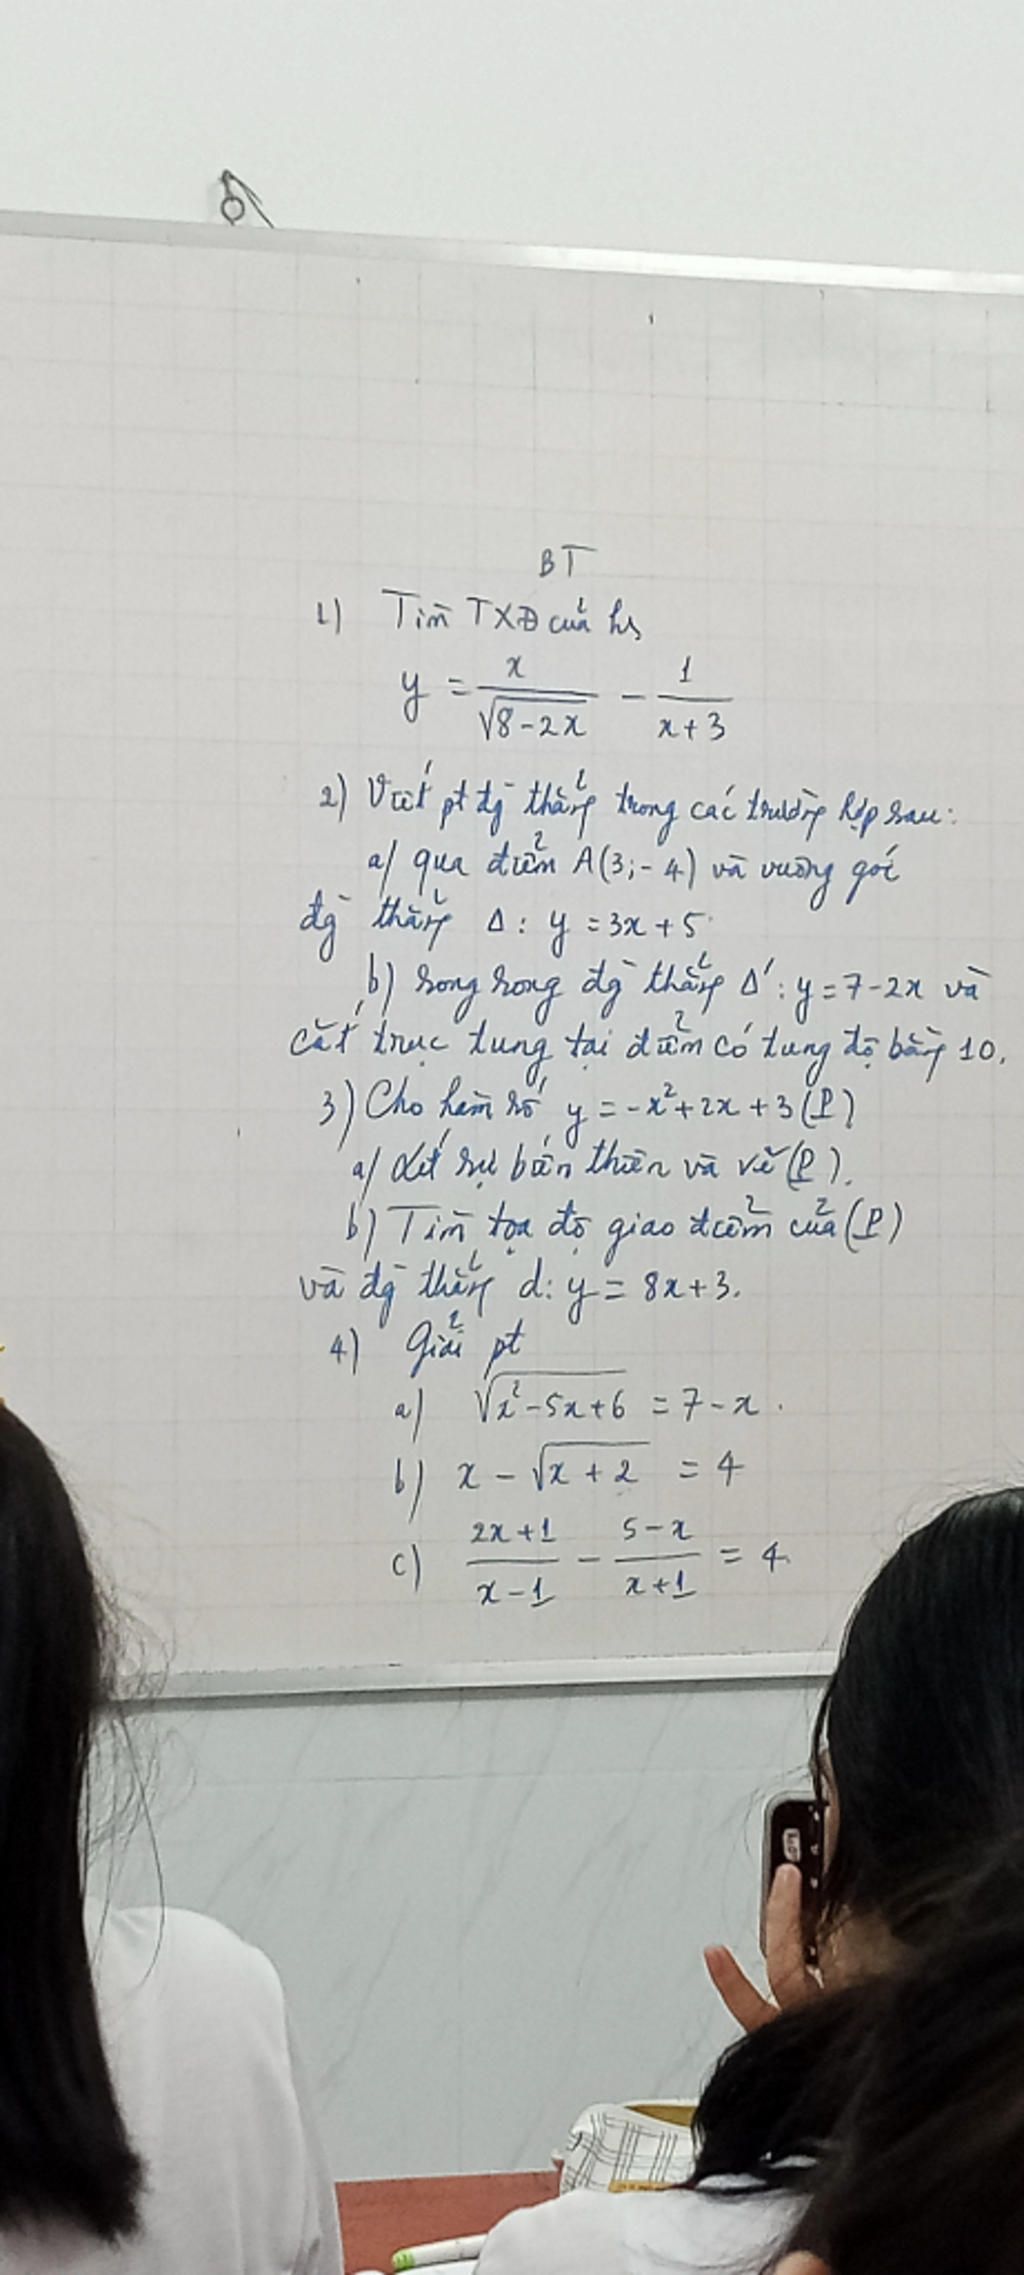 BT
1) Tìm TXĐ của hs
y = x/√(8-2x) - 1/(x+3)
2) Viết pt đg thẳng trong các trường hợp sau:
a/ qua điểm A(3;-4) và vuông góc
đg thẳng Δ: y = 3x+5
b) song song đg thẳng Δ': y=7-2x và
cắt trục tung tại điểm có tung độ bằng 10.
3) Cho hàm số y = -x²+2x+3 (P)
a/ Xét sự biến thiên và vẽ (P).
b) Tìm tọa độ giao điểm của (P)
và đg thẳng d: y = 8x+3.
4) Giải pt
a) √(x²-5x+6) = 7-x.
b) x - √(x+2) = 4
c) (2x+1)/(x-1) - (5-x)/(x+1) = 4.